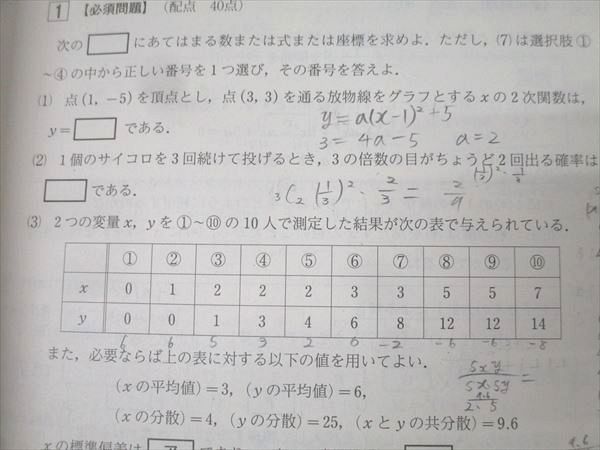 1 【必須問題】 (配点 40点)
次の□にあてはまる数または式または座標を求めよ．ただし，(7)は選択肢①
~④の中から正しい番号を1つ選び，その番号を答えよ．
(1) 点(1, −5)を頂点とし，点(3, 3)を通る放物線をグラフとするxの2次関数は，
y=a(x-1)²+5
y=□である．
3=4a-5 a=2
(2) 1個のサイコロを3回続けて投げるとき，3の倍数の目がちょうど2回出る確率は
□である．
₃C₂ (1/3)² · 2/3 = 2/9
(3) 2つの変量x，yを①~⑩の10人で測定した結果が次の表で与えられている．
① ② ③ ④ ⑤ ⑥ ⑦ ⑧ ⑨ ⑩
x 0 1 2 2 2 3 3 5 5 7
y 0 0 1 3 4 6 8 12 12 14
6 6 5 3 2 0 -2 -6 -6 -8
また，必要ならば上の表に対する以下の値を用いてよい．
(xの平均値)=3，(yの平均値)=6，
(xの分散)=4，(yの分散)=25，(xとyの共分散)=9.6
9.6
2·5
xの標準偏差は ア